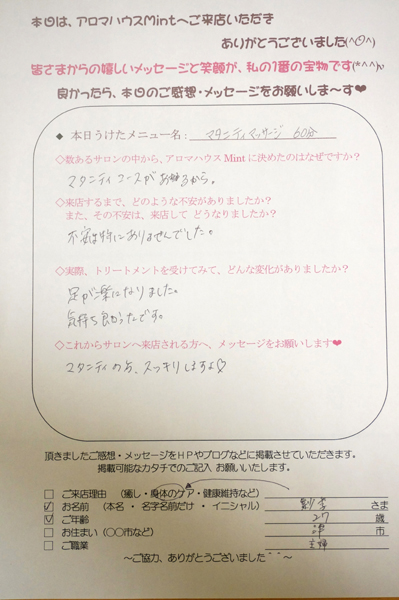 本日は、アロマハウスMintへご来店いただき
ありがとうございました(^O^)
皆さまからの嬉しいメッセージと笑顔が、私の1番の宝物です(*^^)v
良かったら、本日のご感想・メッセージをお願いしま～す❤
◆ 本日うけたメニュー名： マタニティマッサージ 60分
◇数あるサロンの中から、アロマハウス Mint に決めたのはなぜですか？
マタニティコースがあるから。
◇来店するまで、どのような不安がありましたか？
また、その不安は、来店して どうなりましたか？
不安は特にありませんでした。
◇実際、トリートメントを受けてみて、どんな変化がありましたか？
足が楽になりました。
気持ち良かったです。
◇これからサロンへ来店される方へ、メッセージをお願いします❤
マタニティの方、スッキリしますよ♡
頂きましたご感想・メッセージをＨＰやブログなどに掲載させていただきます。
掲載可能なカタチでのご記入 お願いいたします。
□ ご来店理由 （癒し・身体のケア・健康維持など）
☑ お名前 （本名 ・ 名字名前だけ ・ イニシャル） さま
☑ ご年齢 27 歳
□ お住まい（○○市など） 市
□ ご職業 主婦
～ご協力、ありがとうございました＾＾～